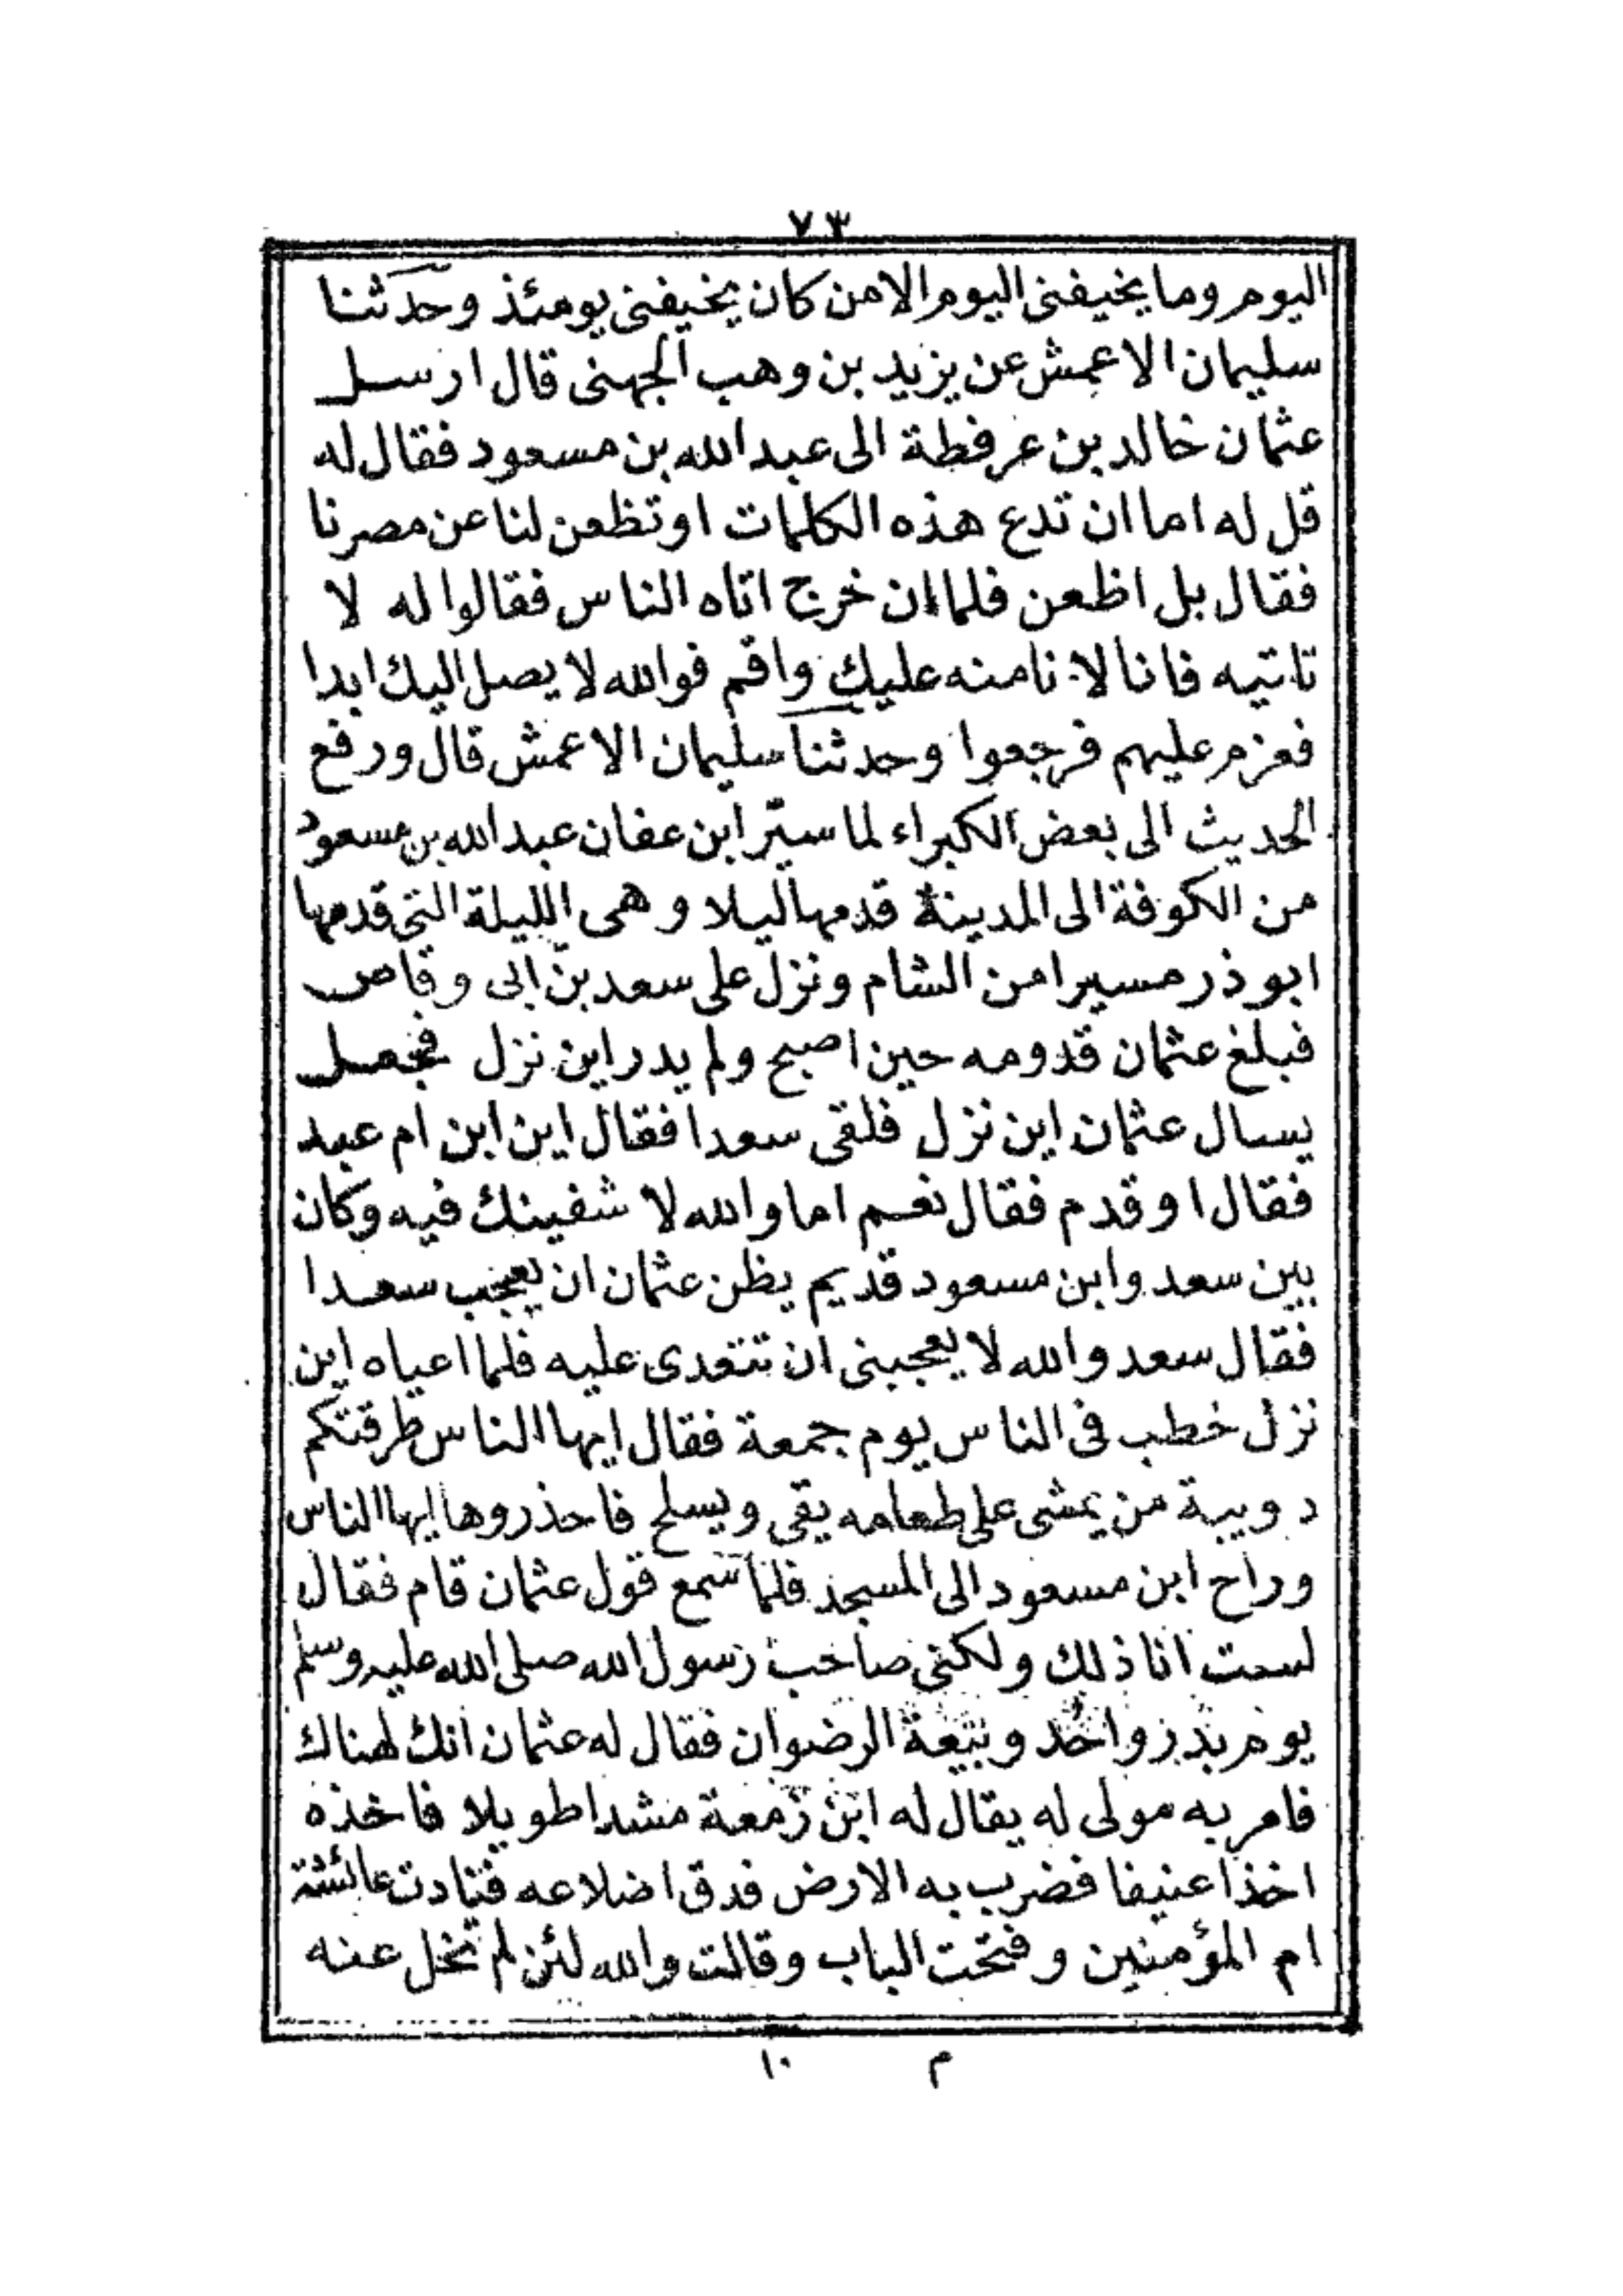 ٧٣
اليوم وما يخيفنى اليوم الا من كان يخيفنى يومئذ وحدثنا
سليمان الاعمش عن يزيد بن وهب الجهنى قال ارسل
عثمان خالد بن عرفطة الى عبدالله بن مسعود فقال له
قل له اما ان تدع هذه الكلمات او تظعن لنا عن مصرنا
فقال بل اظعن فلما ان خرج اتاه الناس فقالوا له لا
تاتيه فانا لا نامنه عليك واقم فوالله لا يصل اليك ابدا
فعزم عليهم فرجعوا وحدثنا سليمان الاعمش قال ورفع
الحديث الى بعض الكبراء لما سيّر ابن عفان عبدالله بن مسعود
من الكوفة الى المدينة قدمها ليلا وهى الليلة التى قدمها
ابو ذر مسيرا من الشام ونزل على سعد بن ابى وقاص
فبلغ عثمان قدومه حين اصبح ولم يدر اين نزل فجعل
يسال عثمان اين نزل فلقى سعدا فقال اين ابن ام عبد
فقال او قدم فقال نعم اما والله لا شفينك فيه وكان
بين سعد وابن مسعود قديم يظن عثمان ان يعجب سعدا
فقال سعد والله لا يعجبنى ان تتعدى عليه فلما اعياه اين
نزل خطب فى الناس يوم جمعة فقال ايها الناس طرقتكم
دويبة من يمشى على طعامه يقى ويسلح فاحذروها ايها الناس
وراح ابن مسعود الى المسجد فلما سمع قول عثمان قام فقال
لست انا ذلك ولكنى صاحب رسول الله صلى الله عليه وسلم
يوم بدر واحُد وبيعة الرضوان فقال له عثمان انك لهناك
فامر به مولى له يقال له ابن زمعة مشدا طويلا فاخذه
اخذا عنيفا فضرب به الارض فدق اضلاعه فنادت عائشة
ام المؤمنين وفتحت الباب وقالت والله لئن لم تخل عنه
م ١٠